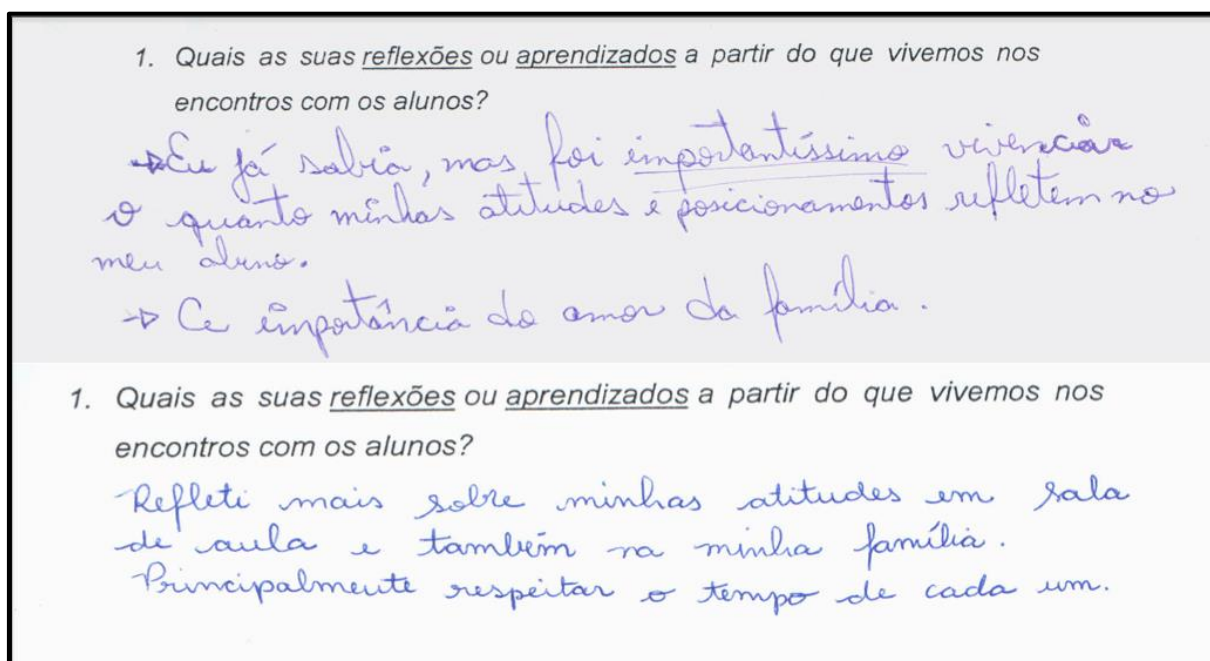 1. Quais as suas reflexões ou aprendizados a partir do que vivemos nos
encontros com os alunos?
→ Eu já sabia, mas foi importantíssimo vivenciar
o quanto minhas atitudes e posicionamentos refletem no
meu aluno.
→ A importância do amor da família.
1. Quais as suas reflexões ou aprendizados a partir do que vivemos nos
encontros com os alunos?
Refleti mais sobre minhas atitudes em sala
de aula e também na minha família.
Principalmente respeitar o tempo de cada um.